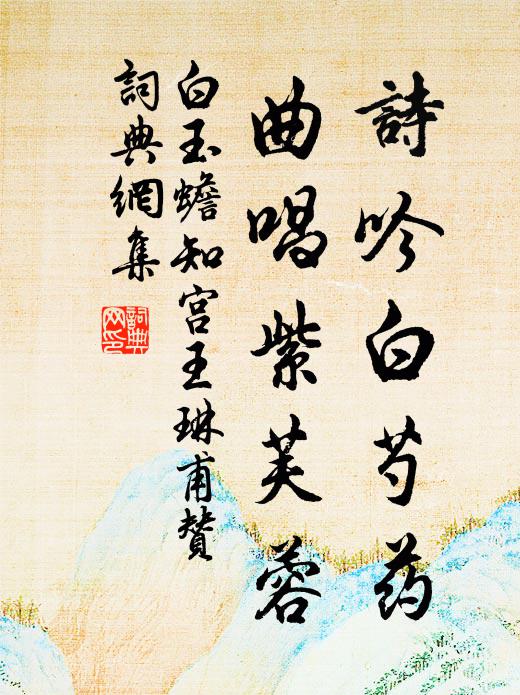 詩吟白芍药
曲唱紫芙蓉
白玉蟾知宫王琳甫贊
詞典網集
詞典网印